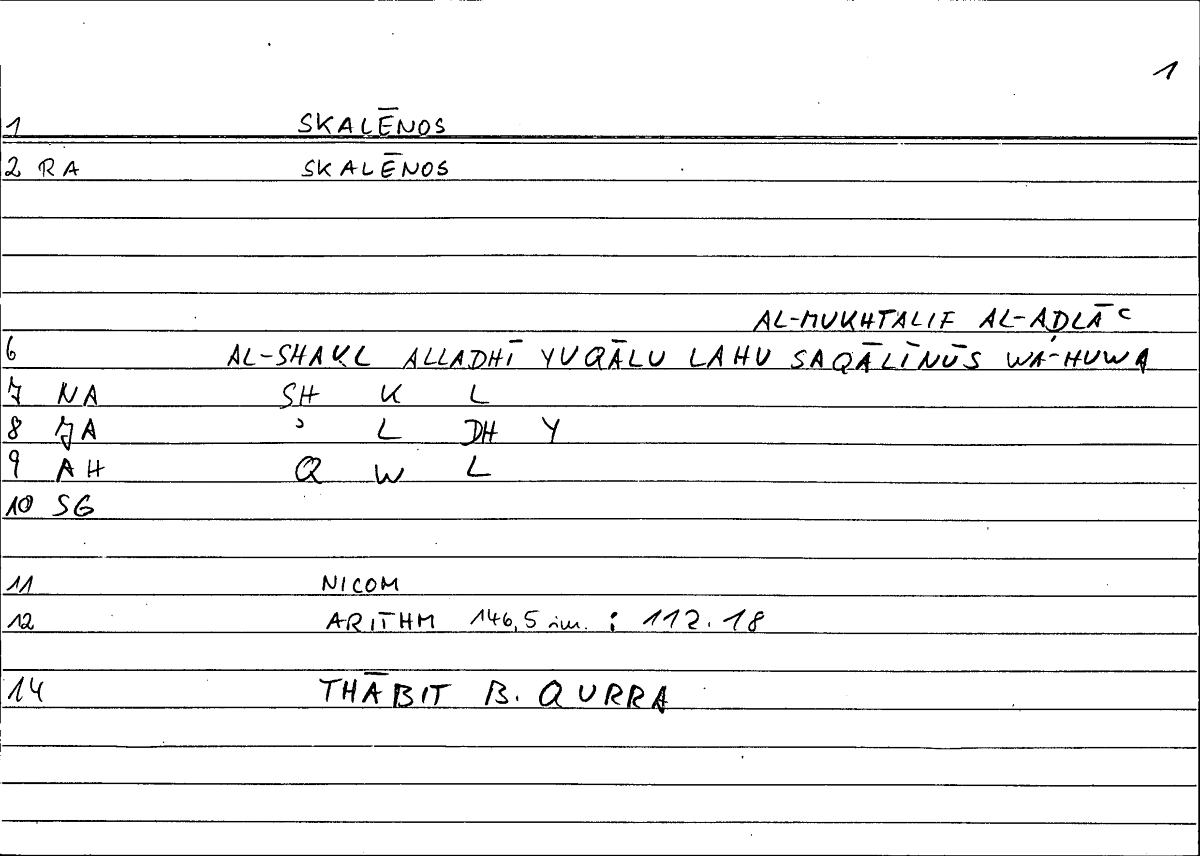 1
1 SKALĒNOS
2 RA SKALĒNOS
AL-MUKHTALIF AL-AḌLĀʿ
6 AL-SHAKL ALLADHĪ YUQĀLU LAHU SAQĀLĪNŪS WA-HUWA
7 NA SH K L
8 JA ʾ L DH Y
9 AH Q W L
10 SG
11 NICOM
12 ARITHM 146,5 inu. : 112.18
14 THĀBIT B. QURRA